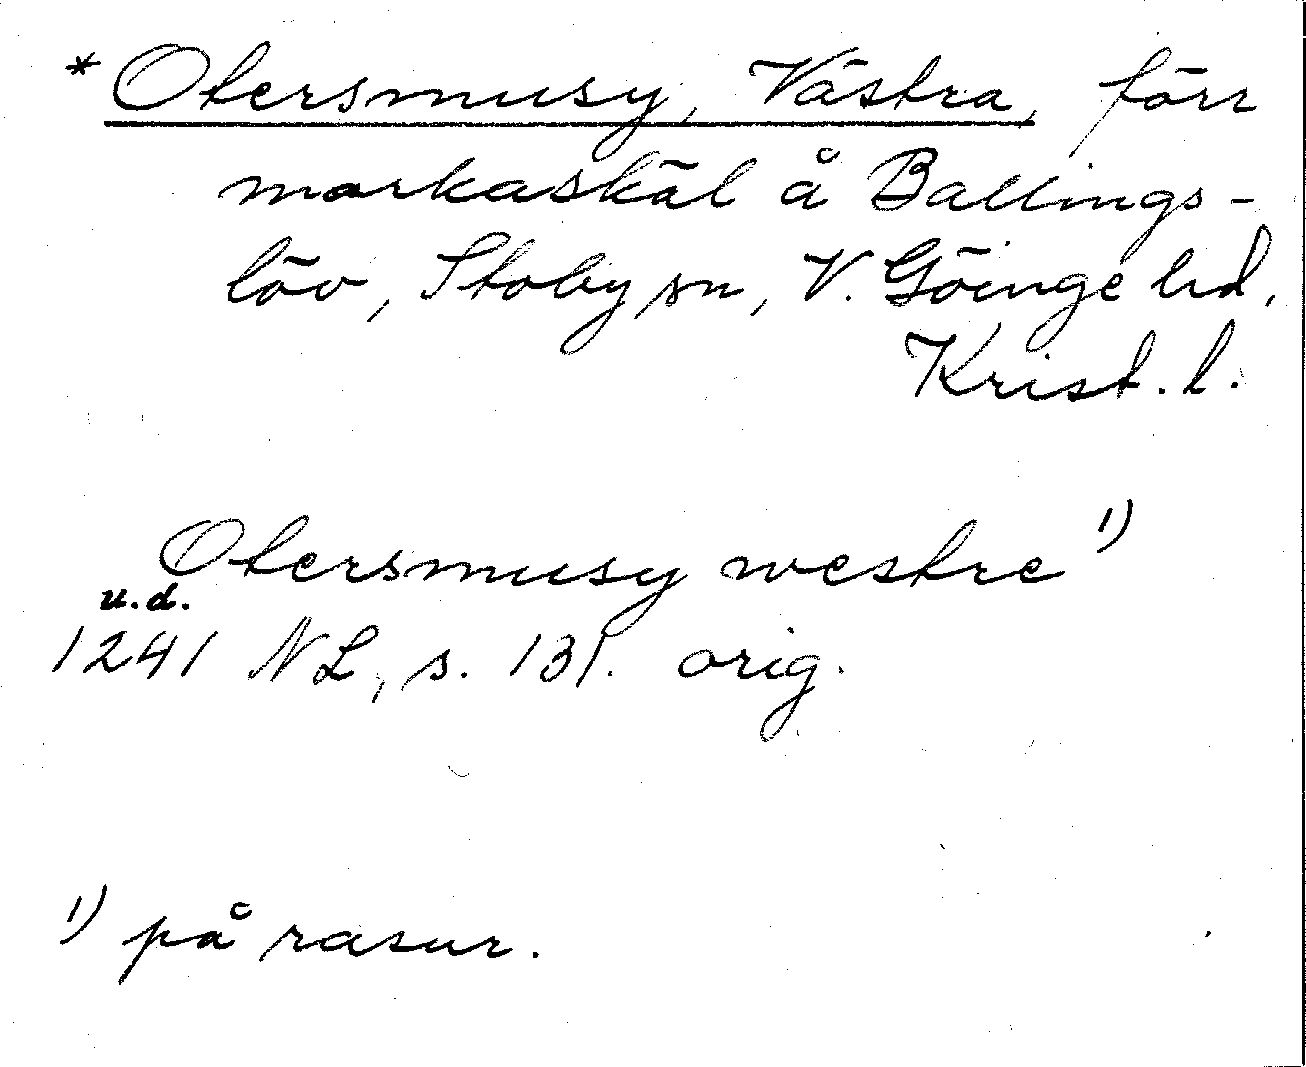 * Otersmusy, Västra, förr
markaskäl å Ballings-
löv, Stoby sn, V. Göinge hd,
Krist. l.
Otersmusy westre 1)
u.d.
1241 NL, s. 131. orig.
1) på rasur.